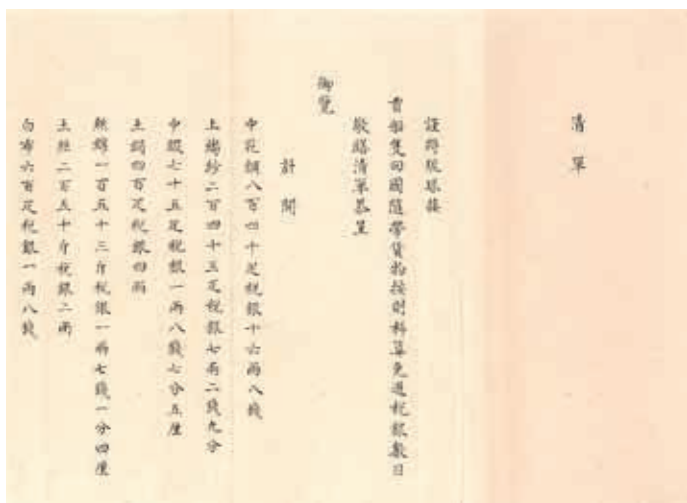 清單
謹將琉球接
貢船隻回國隨帶貨物按則科算免過稅銀數目
敬繕清單恭呈
御覽
計開
中花綢八百四十疋稅銀十六兩八錢
上縐紗二百四十三疋稅銀七兩二錢九分
中緞七十五疋稅銀一兩八錢七分五厘
土絹四百疋稅銀四兩
絲綿一百五十三斤稅銀一兩七錢一分四厘
土絲二百五十斤稅銀二兩
白布六百疋稅銀一兩八錢